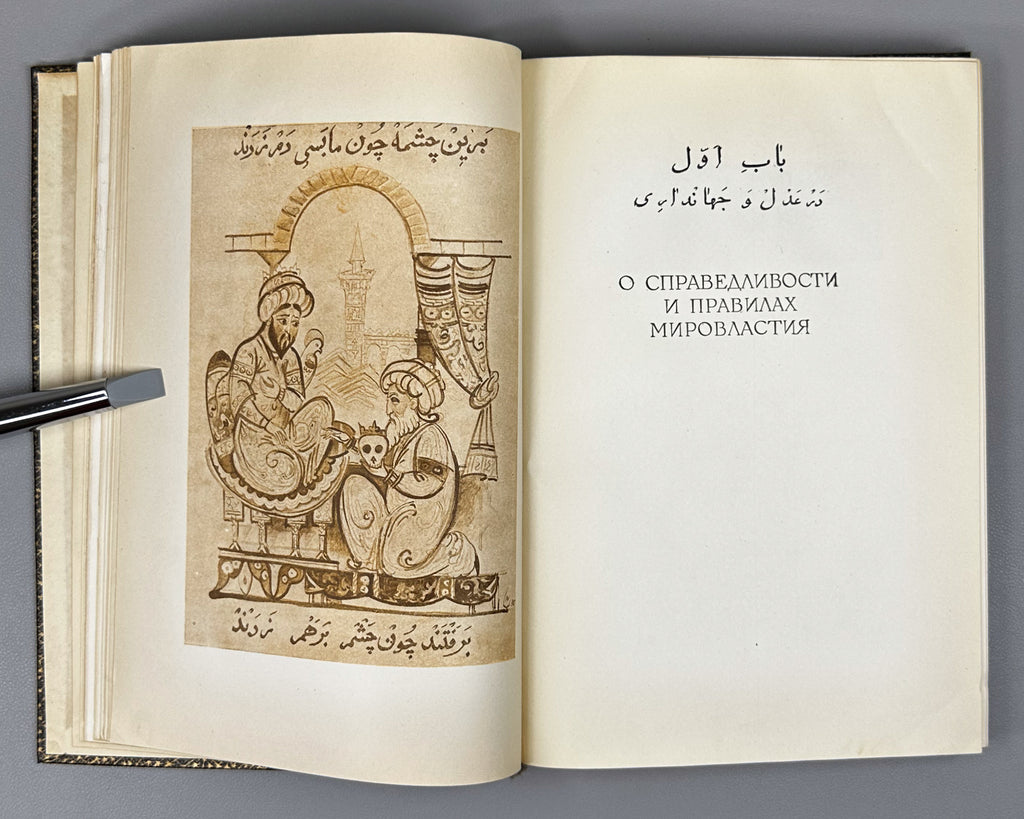 بَرین چَشمَه چُون مابَسی دَم زَدَند
بَرَفتَند چُون چَشم بَرهَم زَدَند
بابِ اوّل
دَر عَدل وَ جَهانداری
О СПРАВЕДЛИВОСТИ
И ПРАВИЛАХ
МИРОВЛАСТИЯ